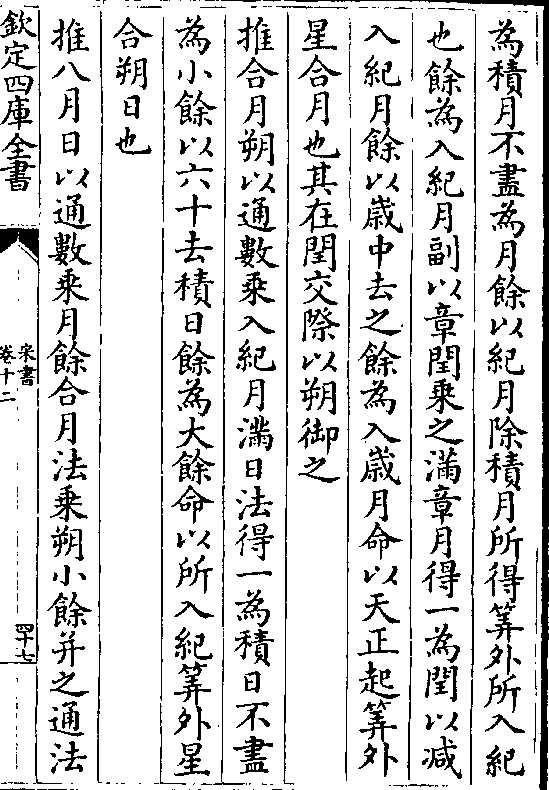 為積月不盡為月餘以紀月除積月所得筭外所入紀
也餘為入紀月副以章閏乗之滿章月得一為閏以减
入紀月餘以歳中去之餘為入歳月命以天正起筭外
星合月也其在閏交際以朔御之
推合月朔以通數乗入紀月滿日法得一為積日不盡
為小餘以六十去積日餘為大餘命以所入紀筭外星
合朔日也
推八月日以通數乗月餘合月法乗朔小餘并之通法
欽定四庫全書
宋書
卷十二
四十七